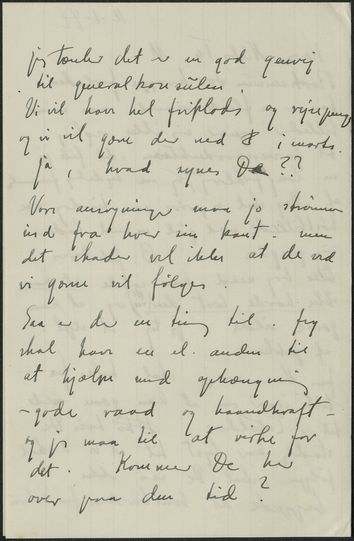 jeg tænker det er en god genvej
til generalkonsulen.
Vi vil have hel friplads og rejsepenge
og vi vil gerne der ned i marts.
Ja, hvad synes De ??
Vore ansøgninger maa jo strømme
ind fra hver sin kant. men
det skader vel ikke at de ved
vi gerne vil følges.
Saa er der en ting til. Jeg
skal have en el. anden til
at hjælpe med ophængning
– gode raad og haandkraft –
og jeg maa til at virke for
det. Kommer De her
over paa den tid?